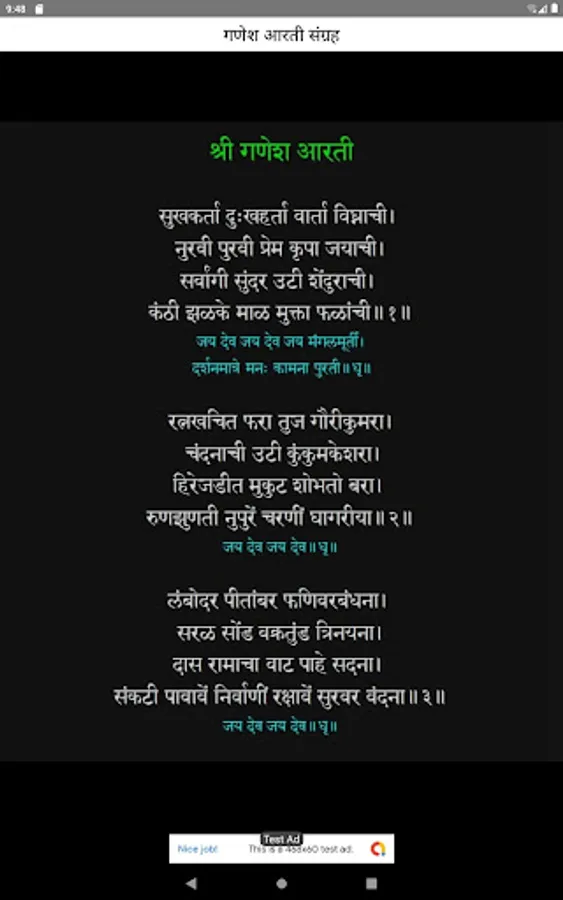 9:48
गणेश आरती संग्रह
श्री गणेश आरती
सुखकर्ता दुःखहर्ता वार्ता विघ्नाची।
नुरवी पुरवी प्रेम कृपा जयाची।
सर्वांगी सुंदर उटी शेंदुराची।
कंठी झळके माळ मुक्ता फळांची॥१॥
जय देव जय देव जय मंगलमूर्ती।
दर्शनमात्रे मनः कामना पुरती॥धृ॥
रत्नखचित फरा तुज गौरीकुमरा।
चंदनाची उटी कुंकुमकेशरा।
हिरेजडीत मुकुट शोभतो बरा।
रुणझुणती नुपुरें चरणीं घागरीया॥२॥
जय देव जय देव॥धृ॥
लंबोदर पीतांबर फणिवरबंधना।
सरळ सोंड वक्रतुंड त्रिनयना।
दास रामाचा वाट पाहे सदना।
संकटी पावावें निर्वाणीं रक्षावें सुरवर वंदना॥३॥
जय देव जय देव॥धृ॥
Test Ad
Nice job! This is a 468x60 test ad.